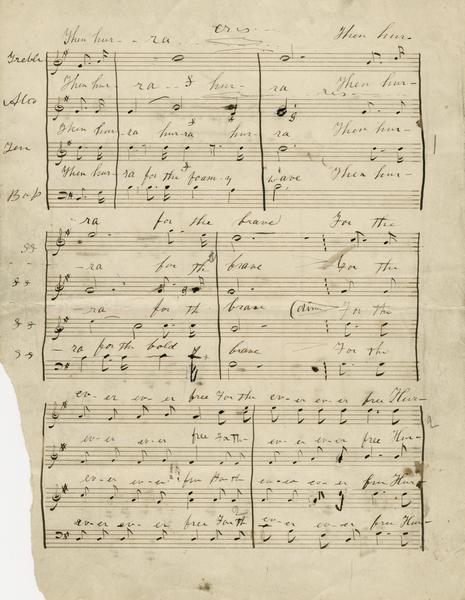 Then hur- - ra cres - - Then hur-
Treble
Then hur- - ra hur- - ra Then hur-
Alto
Then hur- ra hurra hur- ra Then hur-
Ten
Then hur- ra for the foam-y wave Then hur-
Bass
- ra for the brave For the
- ra for the brave For the
- ra for th brave (dim For the
- ra for the bold brave For the
ev- er ev- er free For the ev- er ev- er free Hur-
2
ev- er ev- er free For th- ev- er ev- er free Hur-
ev- er ev- er free For th ev- er ev- er free Hur-
ev- er ev- er free For th ev- er ev- er free Hur-